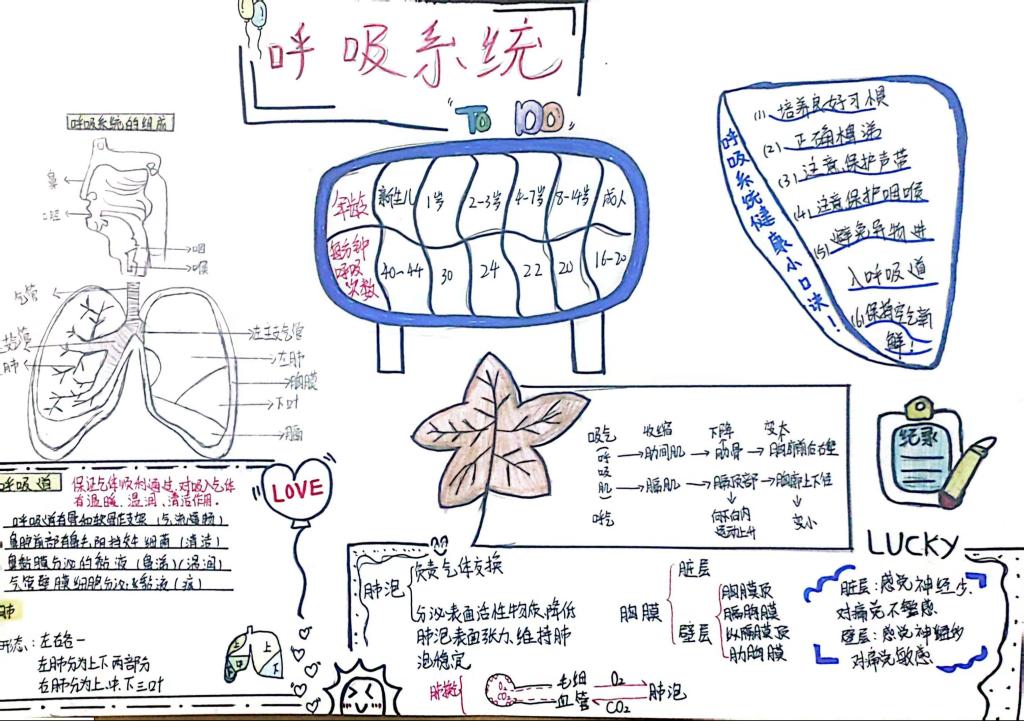 呼吸系统
TO DO
呼吸系统的组成
鼻
口腔
咽
喉
气管
支气管
肺
左主支气管
左肺
胸膜
下叶
膈
年龄 新生儿 1岁 2-3岁 4-7岁 8-14岁 成人
每分钟呼吸次数 40~44 30 24 22 20 16-20
呼吸系统健康小口诀!
(1) 培养良好习惯
(2) 正确擤涕
(3) 注意保护声带
(4) 注意保护咽喉
(5) 避免异物进
入呼吸道
(6) 保持空气新
鲜!
呼吸道
保证气体顺利通过,对吸入气体
有温暖、湿润、清洁作用.
呼吸道有骨和软骨作支架(气流通畅)
鼻腔前部有鼻毛,阻挡灰尘细菌(清洁)
鼻黏膜分泌的黏液(鼻涕)(湿润)
气管壁膜细胞分泌黏液(痰)
LOVE
肺
形态:左右各一
左肺分为上下两部分
右肺分为上、中、下三叶
上
中
下
上
下
吸气 收缩 下降 变大
(呼吸肌) →肋间肌 →肋骨 →胸廓前后左右
→膈肌 →膈顶部 →胸廓上下径
呼气 向
变小
纪录
LUCKY
肺泡
负责气体交换
分泌表面活性物质,降低
肺泡表面张力,维持肺
泡稳定
胸膜
脏层
壁层
胸膜顶
膈胸膜
纵隔膜顶
肋胸膜
脏层:感觉神经少.
对痛觉不敏感
壁层:感觉神经多
对痛觉敏感
O₂
CO₂
毛细
血管
O₂
CO₂
肺泡